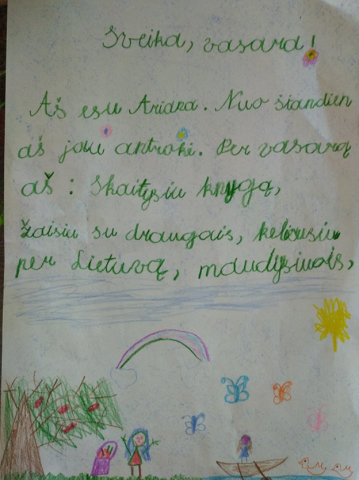 Sveika, vasara!
Aš esu Ariana. Nuo šiandien
aš jau antrokė. Per vasarą
aš: Skaitysiu knygą,
žaisiu su draugais, keliausiu
per Lietuvą, maudysiuos,